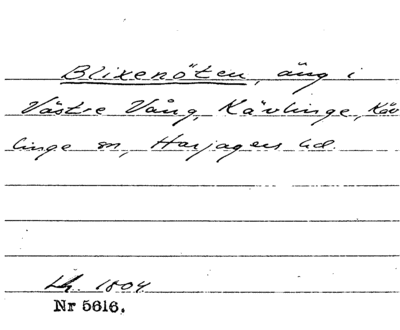 Blixenöten, äng i
Västre Vång, Kävlinge, Käv
linge sn, Harjagers hd.
Lh. 1804
Nr 5616.